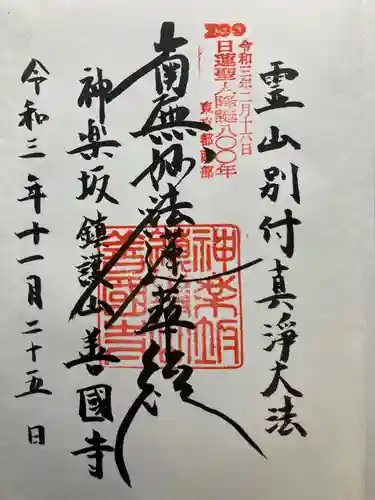 霊山別付真浄大法
令和三年二月十六日
日蓮聖人降誕八〇〇年
東京都西部
南無妙法蓮華経
神楽坂鎮護山善國寺
令和三年十一月二十五日
神楽坂
善國寺